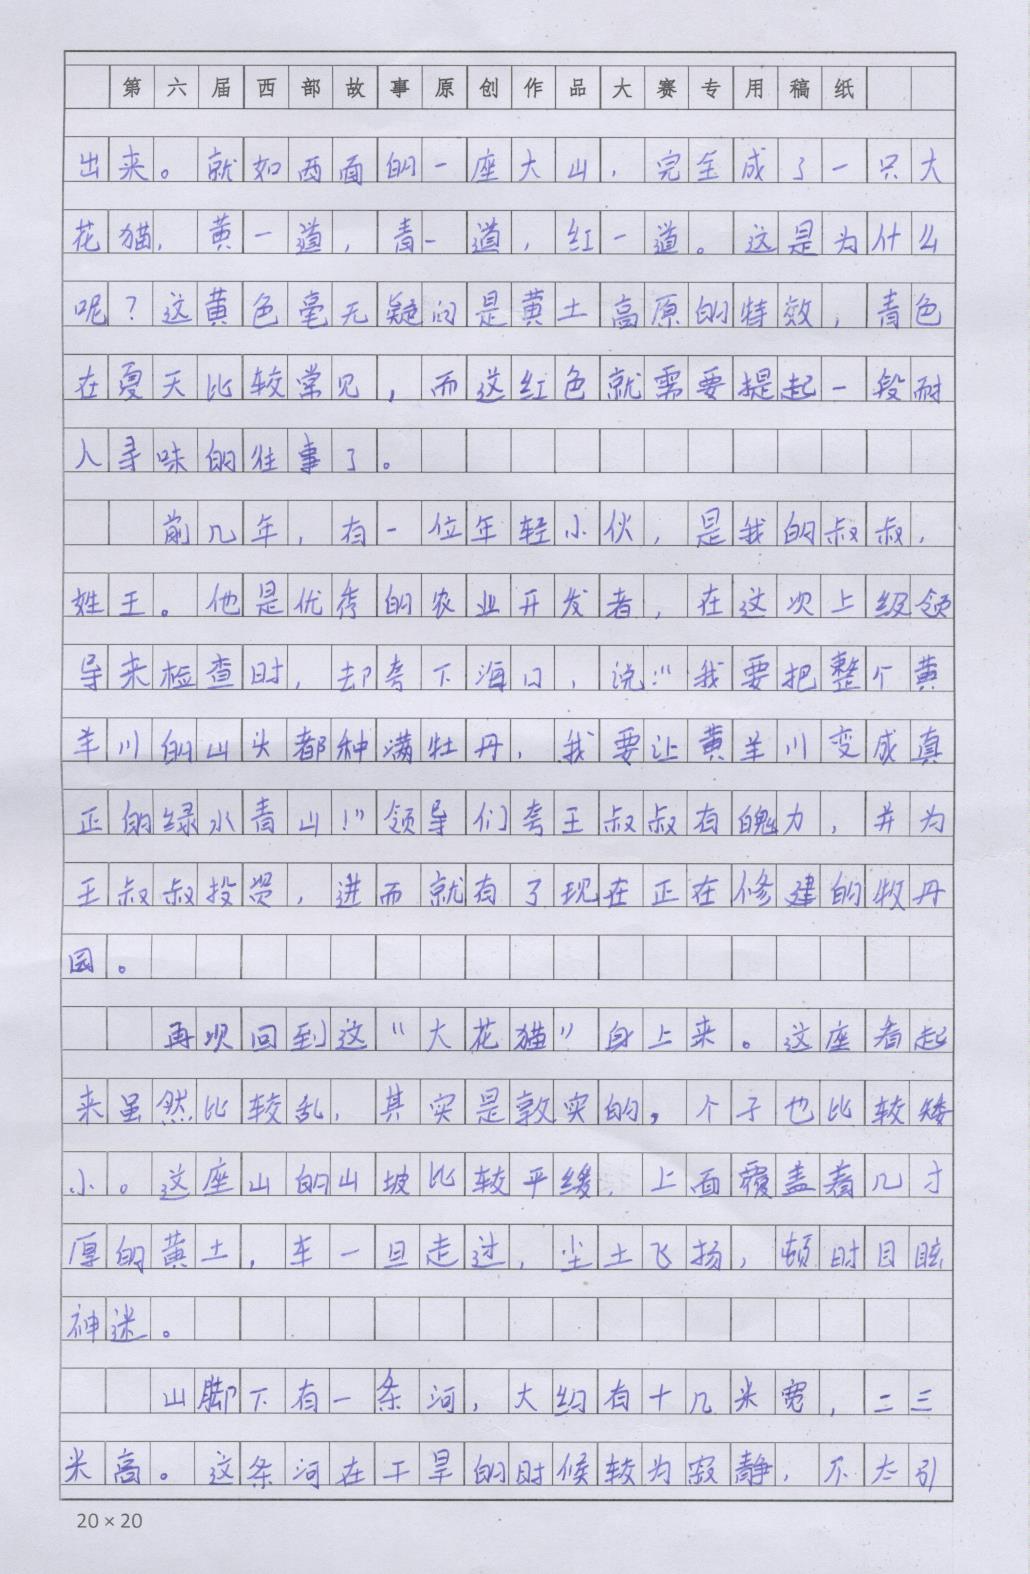 第六届西部故事原创作品大赛专用稿纸
出来。就如西面的一座大山，完全成了一只大
花猫，黄一道，青一道，红一道。这是为什么
呢？这黄色毫无疑问是黄土高原的特效，青色
在夏天比较常见，而这红色就需要提起一段耐
人寻味的往事了。
前几年，有一位年轻小伙，是我的叔叔，
姓王。他是优秀的农业开发者，在这次上级领
导来检查时，却夸下海口，说：“我要把整个黄
羊川的山头都种满牡丹，我要让黄羊川变成真
正的绿水青山！”领导们夸王叔叔有魄力，并为
王叔叔投资，进而就有了现在正在修建的牧丹
园。
再次回到这“大花猫”身上来。这座看起
来虽然比较乱，其实是敦实的，个子也比较矮
小。这座山的山坡比较平缓，上面覆盖着几寸
厚的黄土，车一旦走过，尘土飞扬，顿时目眩
神迷。
山脚下有一条河，大约有十几米宽，二三
米高。这条河在干旱的时候较为寂静，不太引
20×20